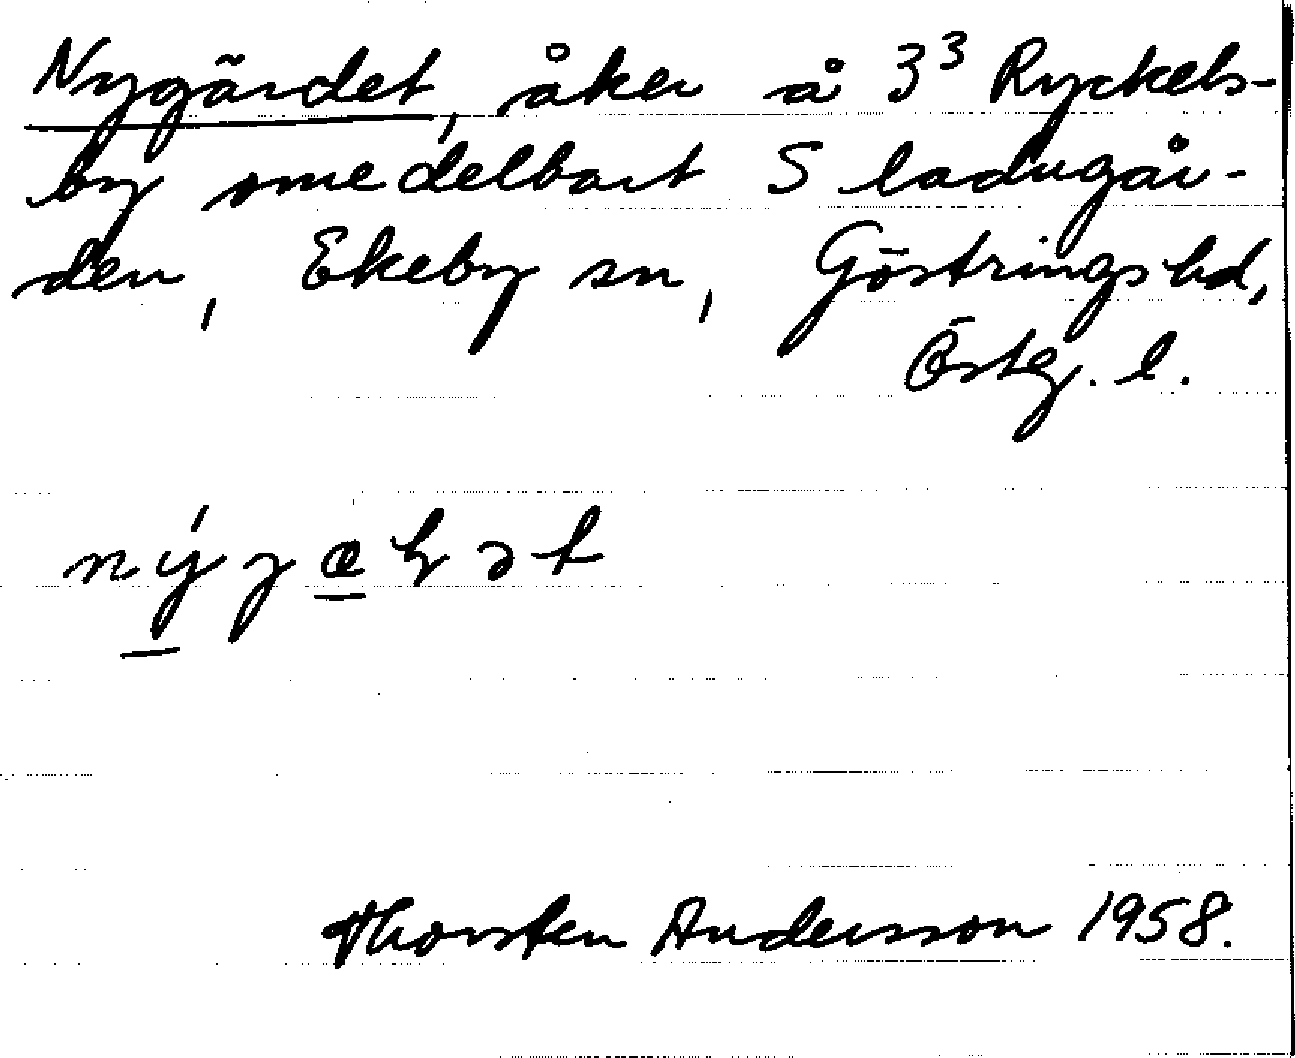 Nygärdet, åker å 3³ Ryckels-
by omedelbart S ladugår-
den, Ekeby sn, Göstrings hd,
Östg. l.
Thorsten Andersson 1958.